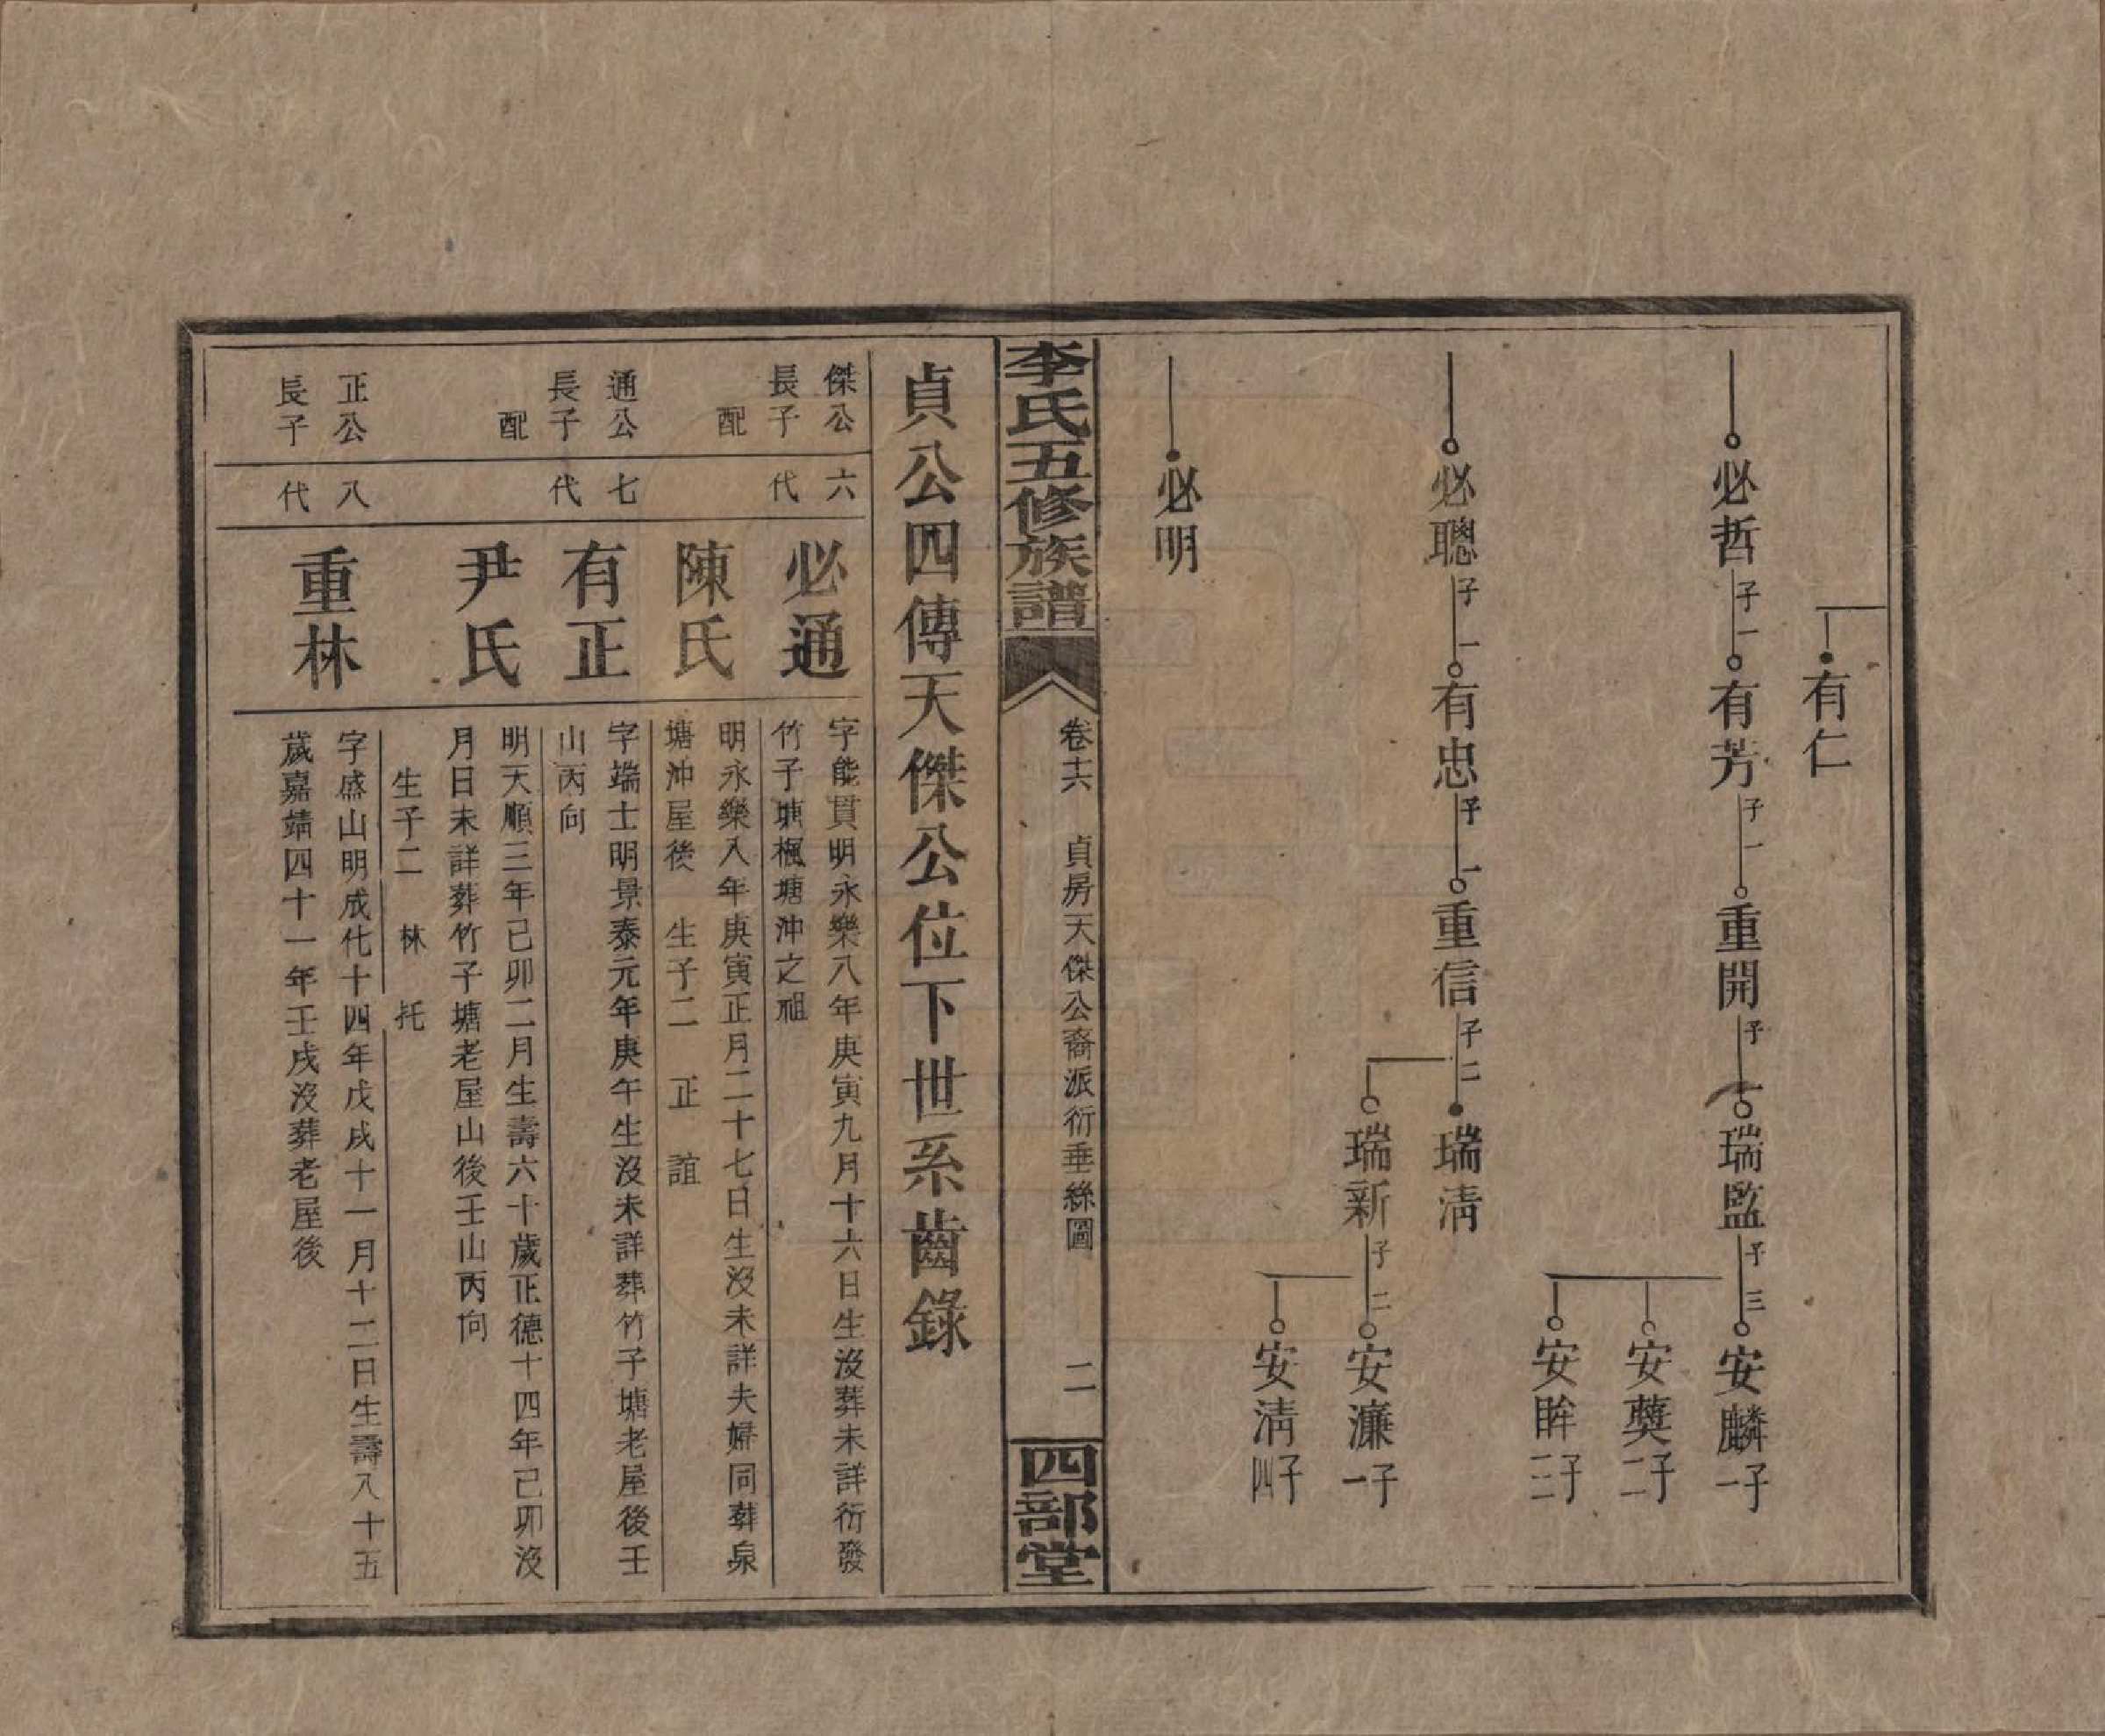 有仁
必哲 子一 有芳 子一 重開 子一 瑞監 子三 安麟 子一
安奬 子二
安眸 子三
必聰 子一 有忠 子一 重信 子二 瑞淸
瑞新 子二 安濂 子一
安淸 子四
必明
李氏五修族譜 卷十六 貞房天傑公裔派衍垂絲圖 二 四部堂
貞公四傳天傑公位下世系齒錄
傑公長子 六代 必通 字能貫明永樂八年庚寅九月十六日生沒葬未詳衍發
竹子塘楓塘沖之祖
配 陳氏 明永樂八年庚寅正月二十七日生沒未詳夫婦同葬泉
塘沖屋後 生子二 正 誼
通公長子 七代 有正 字端士明景泰元年庚午生沒未詳葬竹子塘老屋後壬
山丙向
配 尹氏 明天順三年己卯二月生壽六十歲正德十四年己卯沒
月日未詳葬竹子塘老屋山後壬山丙向
生子二 林 托
正公長子 八代 重林 字盛山明成化十四年戊戌十一月十二日生壽八十五
歲嘉靖四十一年壬戌沒葬老屋後